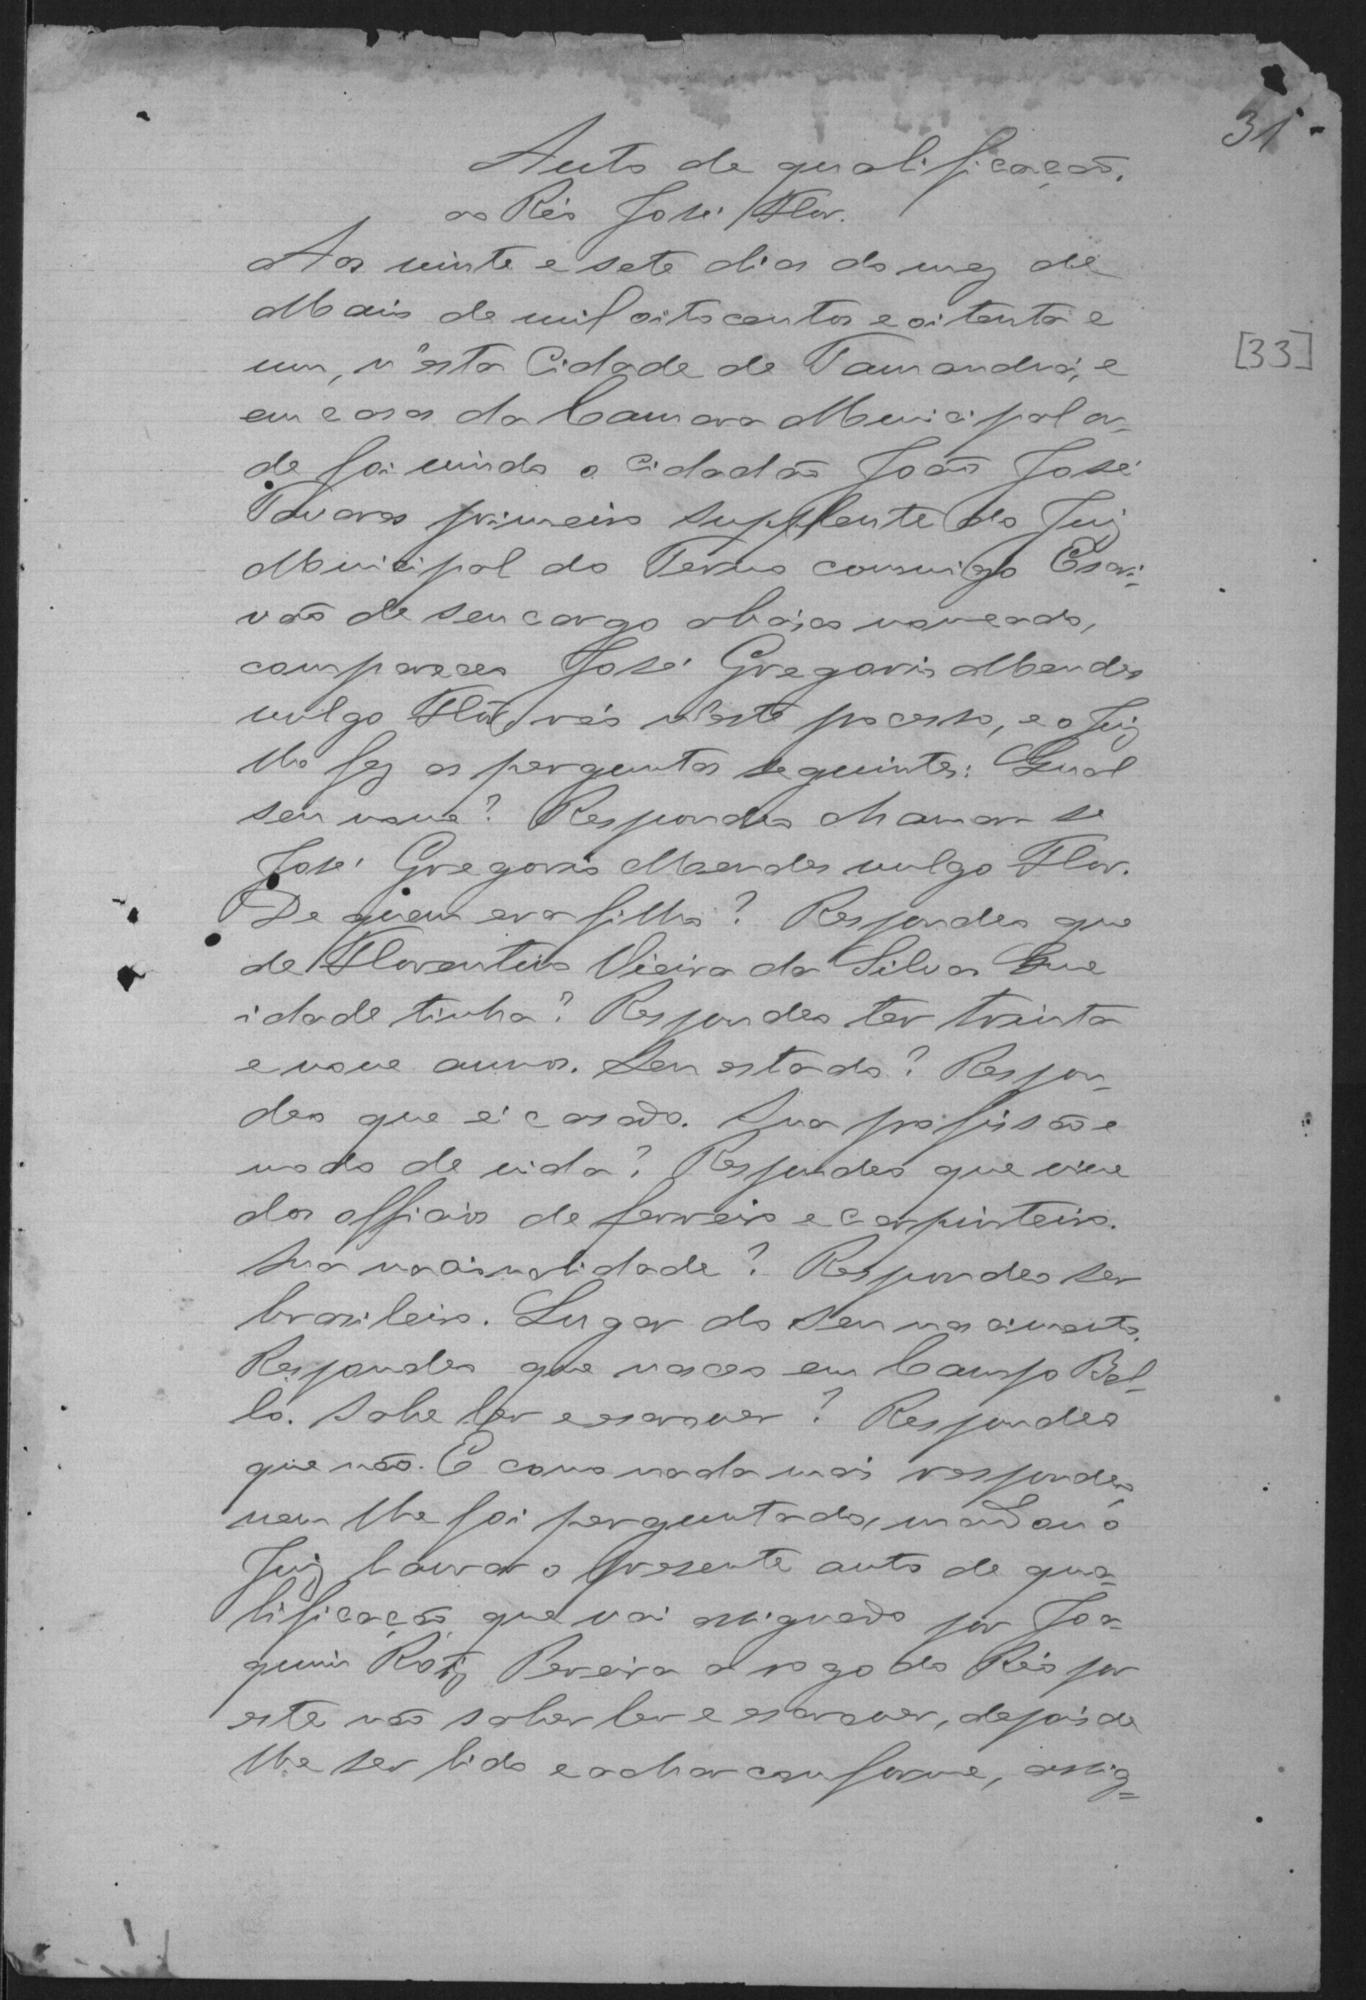 31
Auto de qualificação.
ao Réo José Flor.
Aos vinte e sete dias do mez de
Maio de mil oitocentos e oitenta e
um, n'esta Cidade de Tamanduá, e
em casa da Camara Municipal on-
de foi vindo o cidadão João José
Tavares primeiro supplente do Juiz
[33]
Municipal do Termo commigo Escri-
vão de seu cargo abaixo nomeado,
compareceo José Gregorio Mendes
vulgo Flôr, réo n'este processo, e o Juiz
lhe fez as perguntas seguintes: Qual
seu nome? Respondeo chamar se
José Gregorio Mendes vulgo Flor.
De quem era filho? Respondeo que
de Florentino Vieira da Silva. Que
idade tinha? Respondeo ter trinta
e nove annos. Seu estado? Respon-
deo que é casado. Sua profissão e
modo de vida? Respondeo que vive
dos officios de ferreiro e carpinteiro.
Sua nacionalidade? Respondeo ser
brasileiro. Lugar do seu nascimento.
Respondeo que nasceo em Campo Bel-
lo. Sabe ler e escrever? Respondeo
que não. E como nada mais respondeo
nem lhe foi perguntado, mandou o
Juiz lavrar o presente auto de qua-
lificação, que vai assignado por Joa-
quim Roiz Pereira a rogo do Réo por
este não saber ler e escrever, depois de
lhe ser lido e achar conforme, assig-